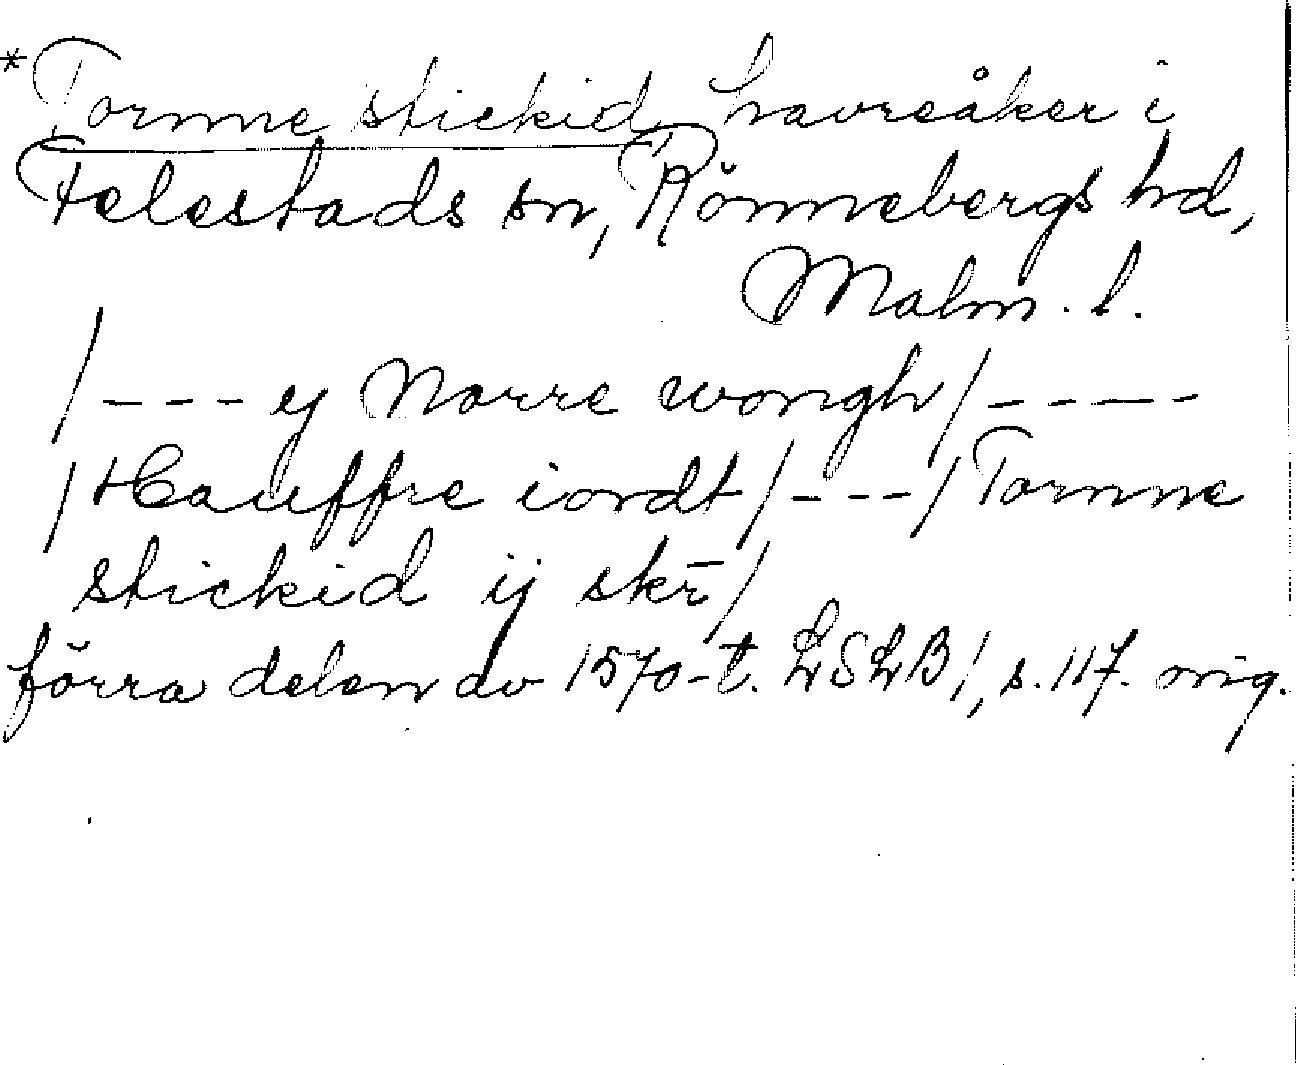 *Tornne stickid, havreåker i
Felestads sn, Rönnebergs hd,
Malm. l.
/--- ij Norre wongh/-----
/Hauffre iordt/---/Tornne
stickid ij skr̄/
förra delen av 1570-t. LSLB1, s. 117. orig.